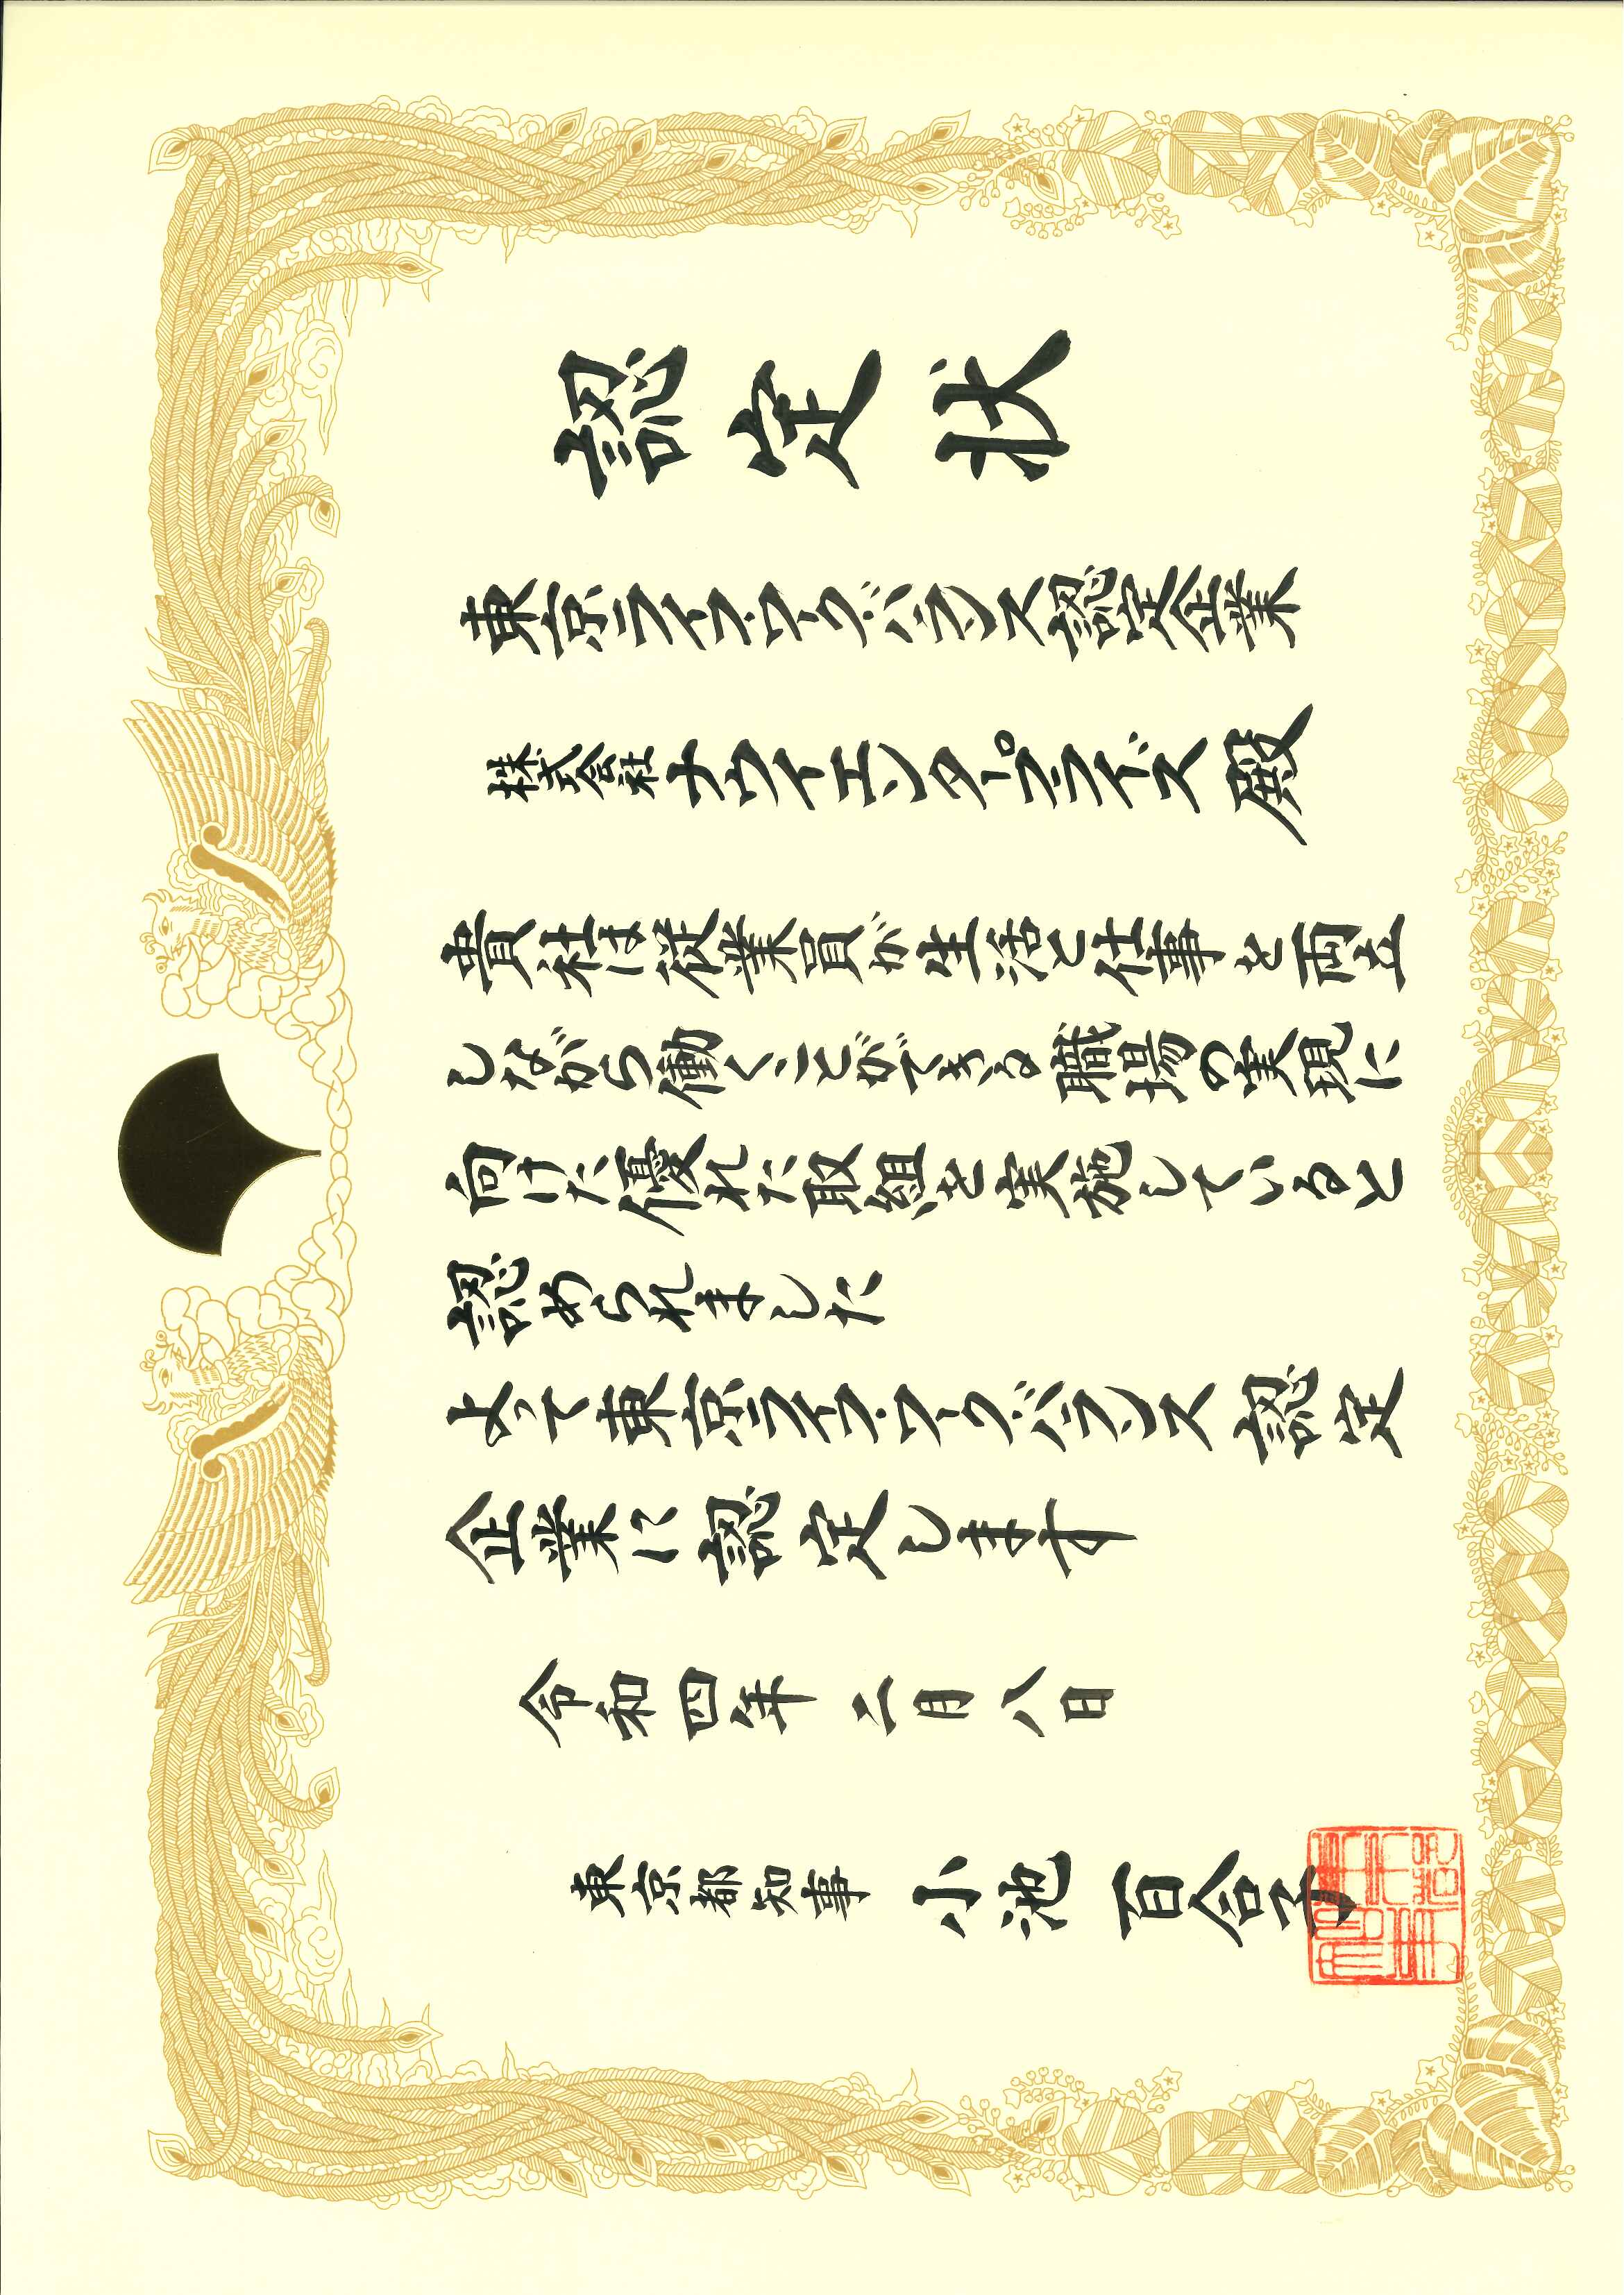 認定状
東京ライフ・ワーク・バランス認定企業
株式会社ナウイエンタープライズ殿
貴社は従業員が生活と仕事を両立
しながら働くことができる職場の実現に
向けた優れた取組を実施していると
認められました
よって東京ライフ・ワーク・バランス認定
企業に認定します
令和四年二月八日
東京都知事 小池百合子